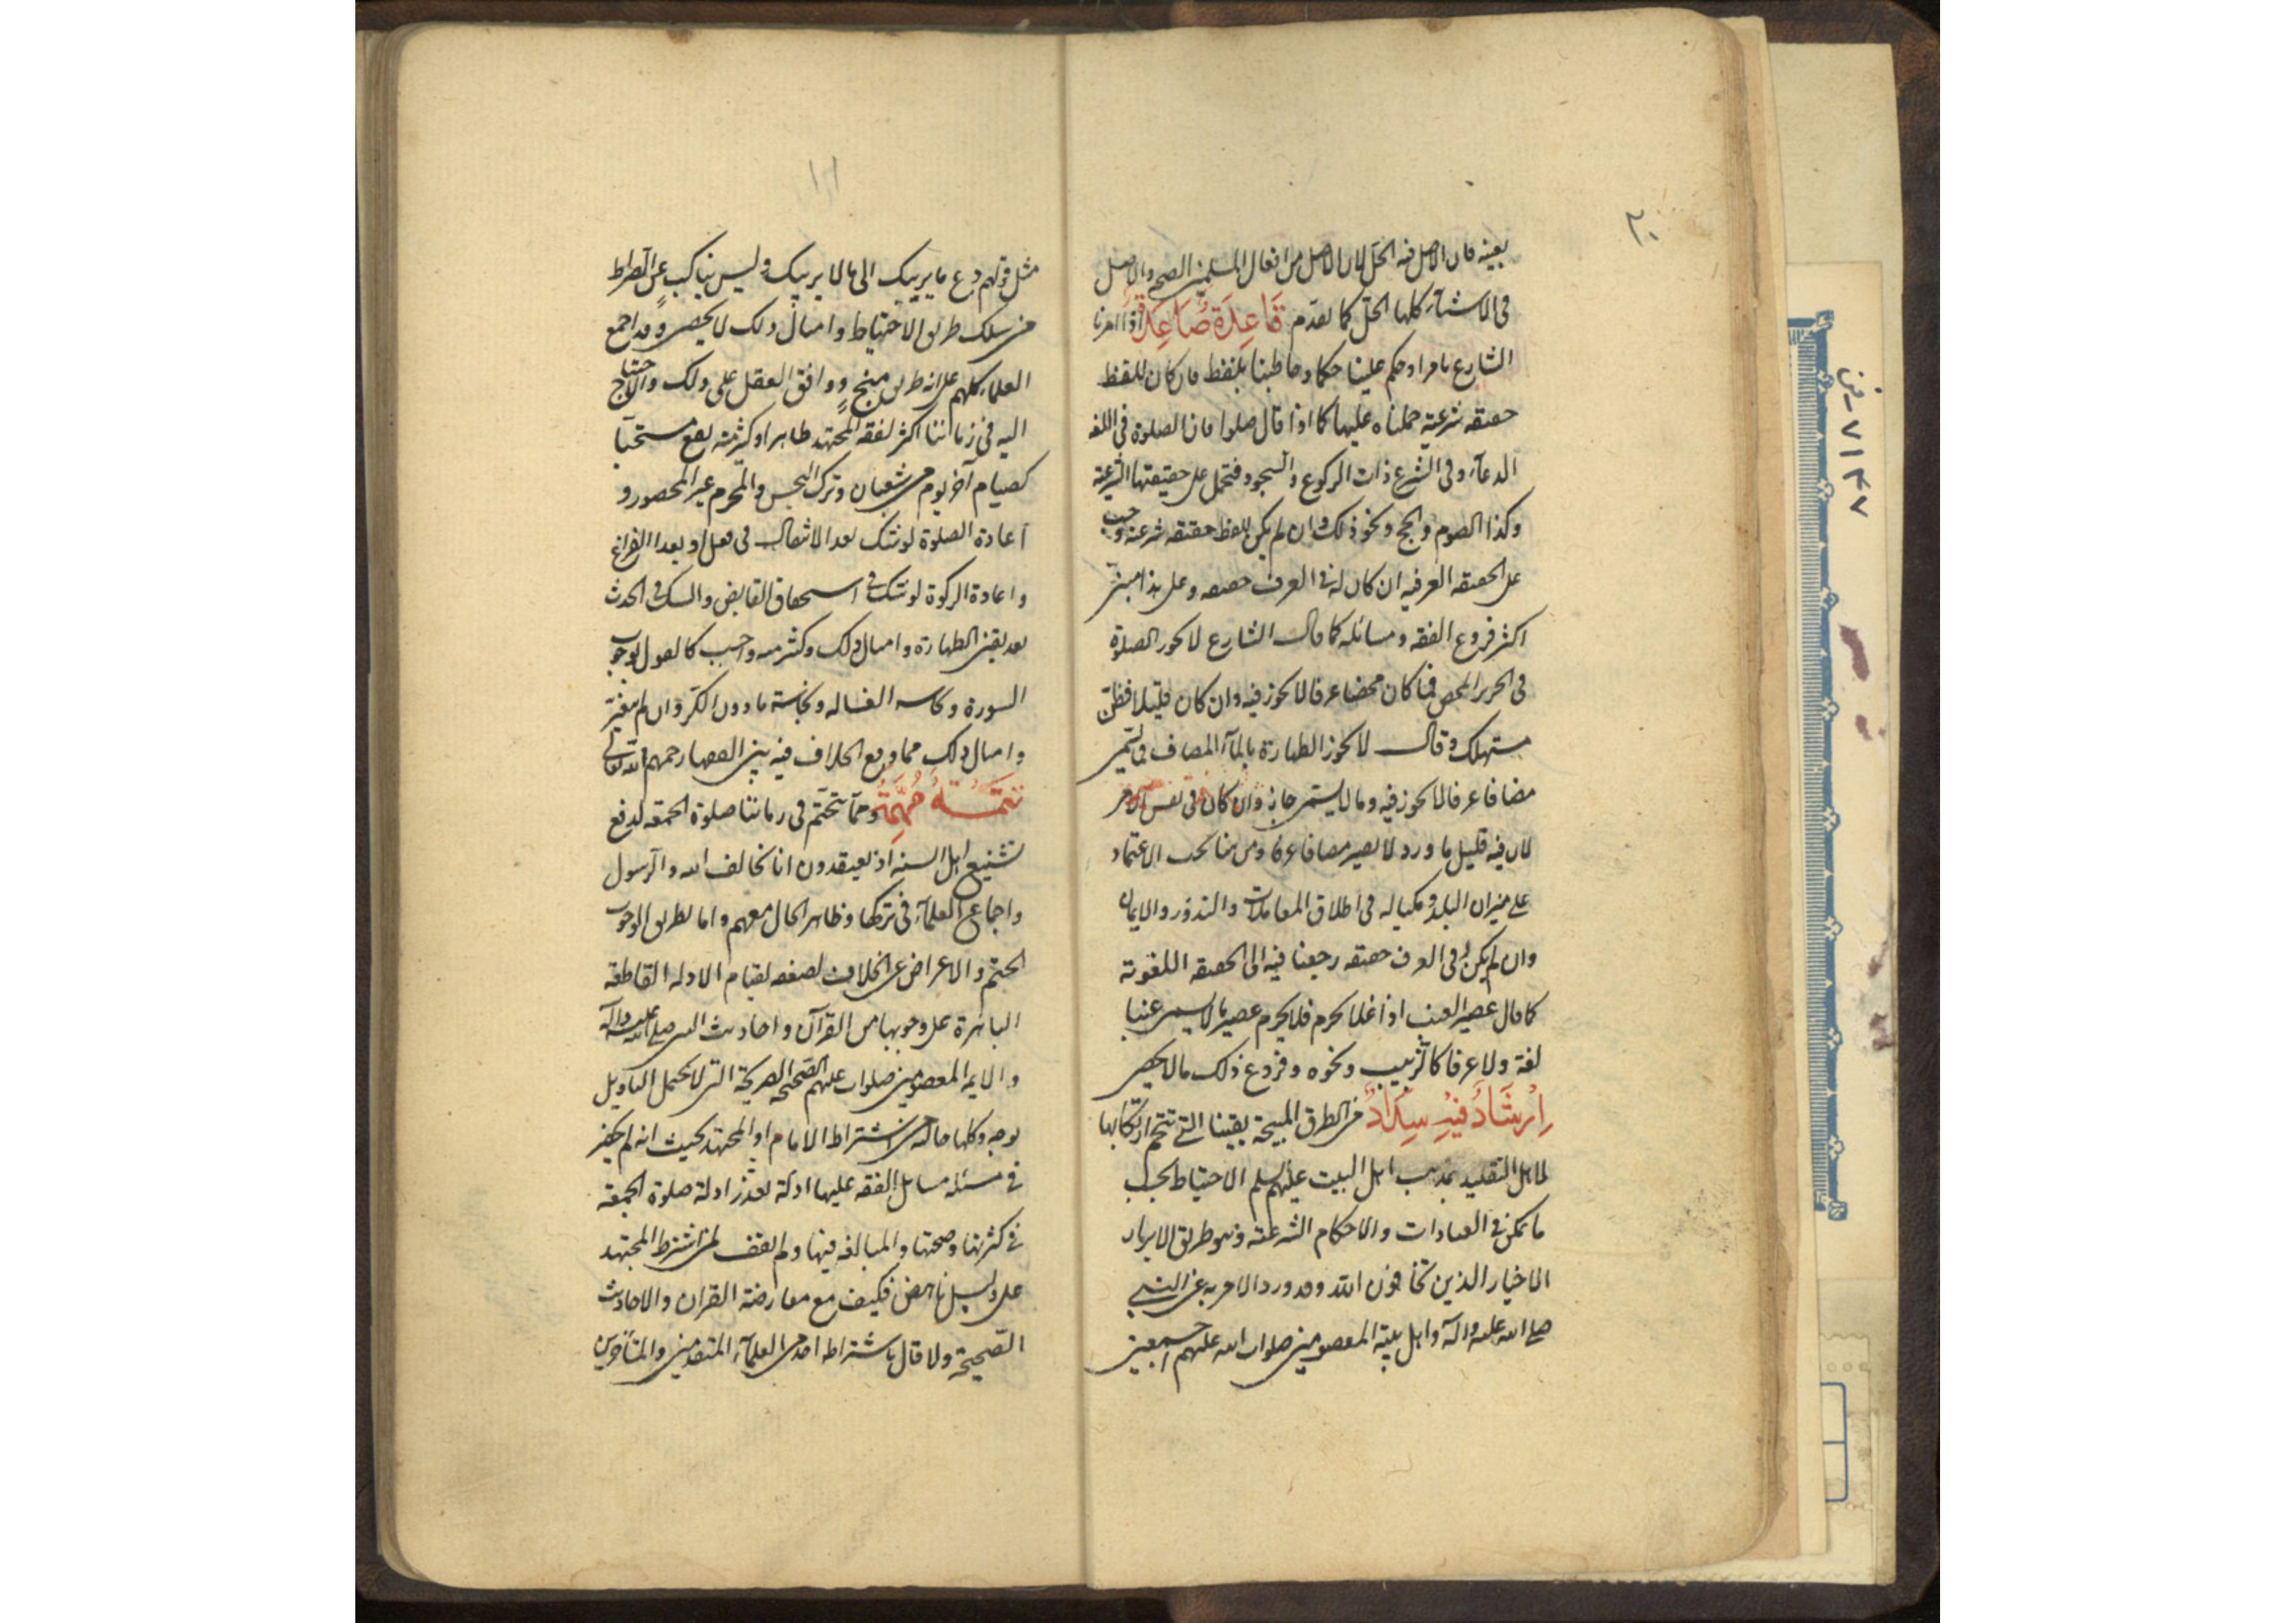 ٢٠
بعينه فان الاصل فيه الحل لان الاصل من افعال المسلمين الصحه والاصل
فى الاشيآء كلها الحل كما تقدم قَاعِدَة صَاعِدَة اذا امرنا
الشارع بامر او حكم علينا حكما وخاطبنا بلفظ فان كان للفظ
حقيقه شرعية حملناه عليها كما اذا قال صلوا فان الصلوة فى اللغه
الدعآء وفى الشرع ذات الركوع والسجود فتحمل على حقيقتها الشرعية
وكذا الصوم والحج ونحو ذلك وان لم يكن للفظ حقيقه شرعيه وجب
على الحقيقه العرفيه ان كان له فى العرف حقيقه وعلى هذا مبنى
اكثر فروع الفقه ومسائله كما قال الشارع لا يجوز الصلوة
فى الحرير المحض فما كان محضا عرفا لا يجوز فيه وان كان قليلا فظن
مستهلك وقال لا يجوز الطهارة بالمآء المضاف فما يسمى
مضافا عرفا لا يجوز فيه وما لا يسمى جاز وان كان فى نفس الامر
لان فيه قليل ما ورد لا يصير مضافا عرفا ومن هنا يجب الاعتماد
على ميزان البلد ومكياله فى اطلاق المعاملات والنذور والايمان
وان لم يكن له فى العرف حقيقه رجعنا فيه الى الحقيقه اللغوية
كما قال عصير العنب اذا غلا يحرم فلا يحرم عصير ما لا يسمى عنبا
لغة ولا عرفا كالزبيب ونحوه وفروع ذلك مما لا يحصى
اِرْشَادٌ فِيْهِ سِدَادٌ من الطرق المبيحة يقينا التى تتحتم ارتكابها
لاهل التقليد بمذهب اهل البيت عليهم السلم الاحتياط بحسب
ما يمكن فى العبادات والاحكام الشرعية وهو طريق الابرار
الاخيار الذين يخافون الله وقد ورد الامر به عن النبى
صلى الله عليه وآله واهل بيته المعصومين صلوات الله عليهم اجمعين
مثل قولهم دع ما يريبك الى ما لا يريبك وليس بناكب عن الصراط
من سلك طريق الاحتياط وامثال ذلك لا يحصى وقد اجمع
العلمآء كلهم على انه طريق منج ووافق العقل على ذلك والاحتياج
اليه فى زماننا اكثر لفقد المجتهد ظاهرا وكثير منه يقع مستحبآ
كصيام آخر يوم من شعبان وترك النجس والمحرم غير المحصور و
اعادة الصلوة لو شك بعد الانتقال فى فعل او بعد الفراغ
واعادة الزكوة لو شك فى استحقاق القابض والشك فى الحدث
بعد يقين الطهارة وامثال ذلك وكثير منه واجب كالقول بوجوب
السورة ونجاسه الغساله ونجاسة ما دون الكر وان لم يتغير
وامثال ذلك مما وقع الخلاف فيه بين الفقهاء رحمهم الله تعالى
تَتِمَّةٌ مُهِمَّةٌ ومما يتحتم فى زماننا صلوة الجمعه لدفع
تشنيع اهل السنه اذ يعتقدون انا نخالف الله والرسول
واجماع العلمآء فى تركها وظاهر الحال معهم واما بطريق الوجوب
الحتم والاعراض عن الخلاف لضعفه لقيام الادله القاطعه
الباهرة على وجوبها من القرآن واحاديث النبى صلى الله عليه وآله
والائمه المعصومين صلوات عليهم الصحيحه الصريحة التى لا تحتمل التاويل
بوجه وكلها خاليه من اشتراط الامام او المجتهد بحيث انه لم يحضر
فى مسئله من مسايل الفقه عليها ادلة بقدر ادلة صلوة الجمعة
فى كثرتها وصحتها والمبالغه فيها ولم نقف لمن اشترط المجتهد
على دليل ناهض فكيف مع معارضة القران والاحاديث
الصحيحة ولا قال باشتراطه احد من العلمآء المتقدمين والمتأخرين
٧١٣٧